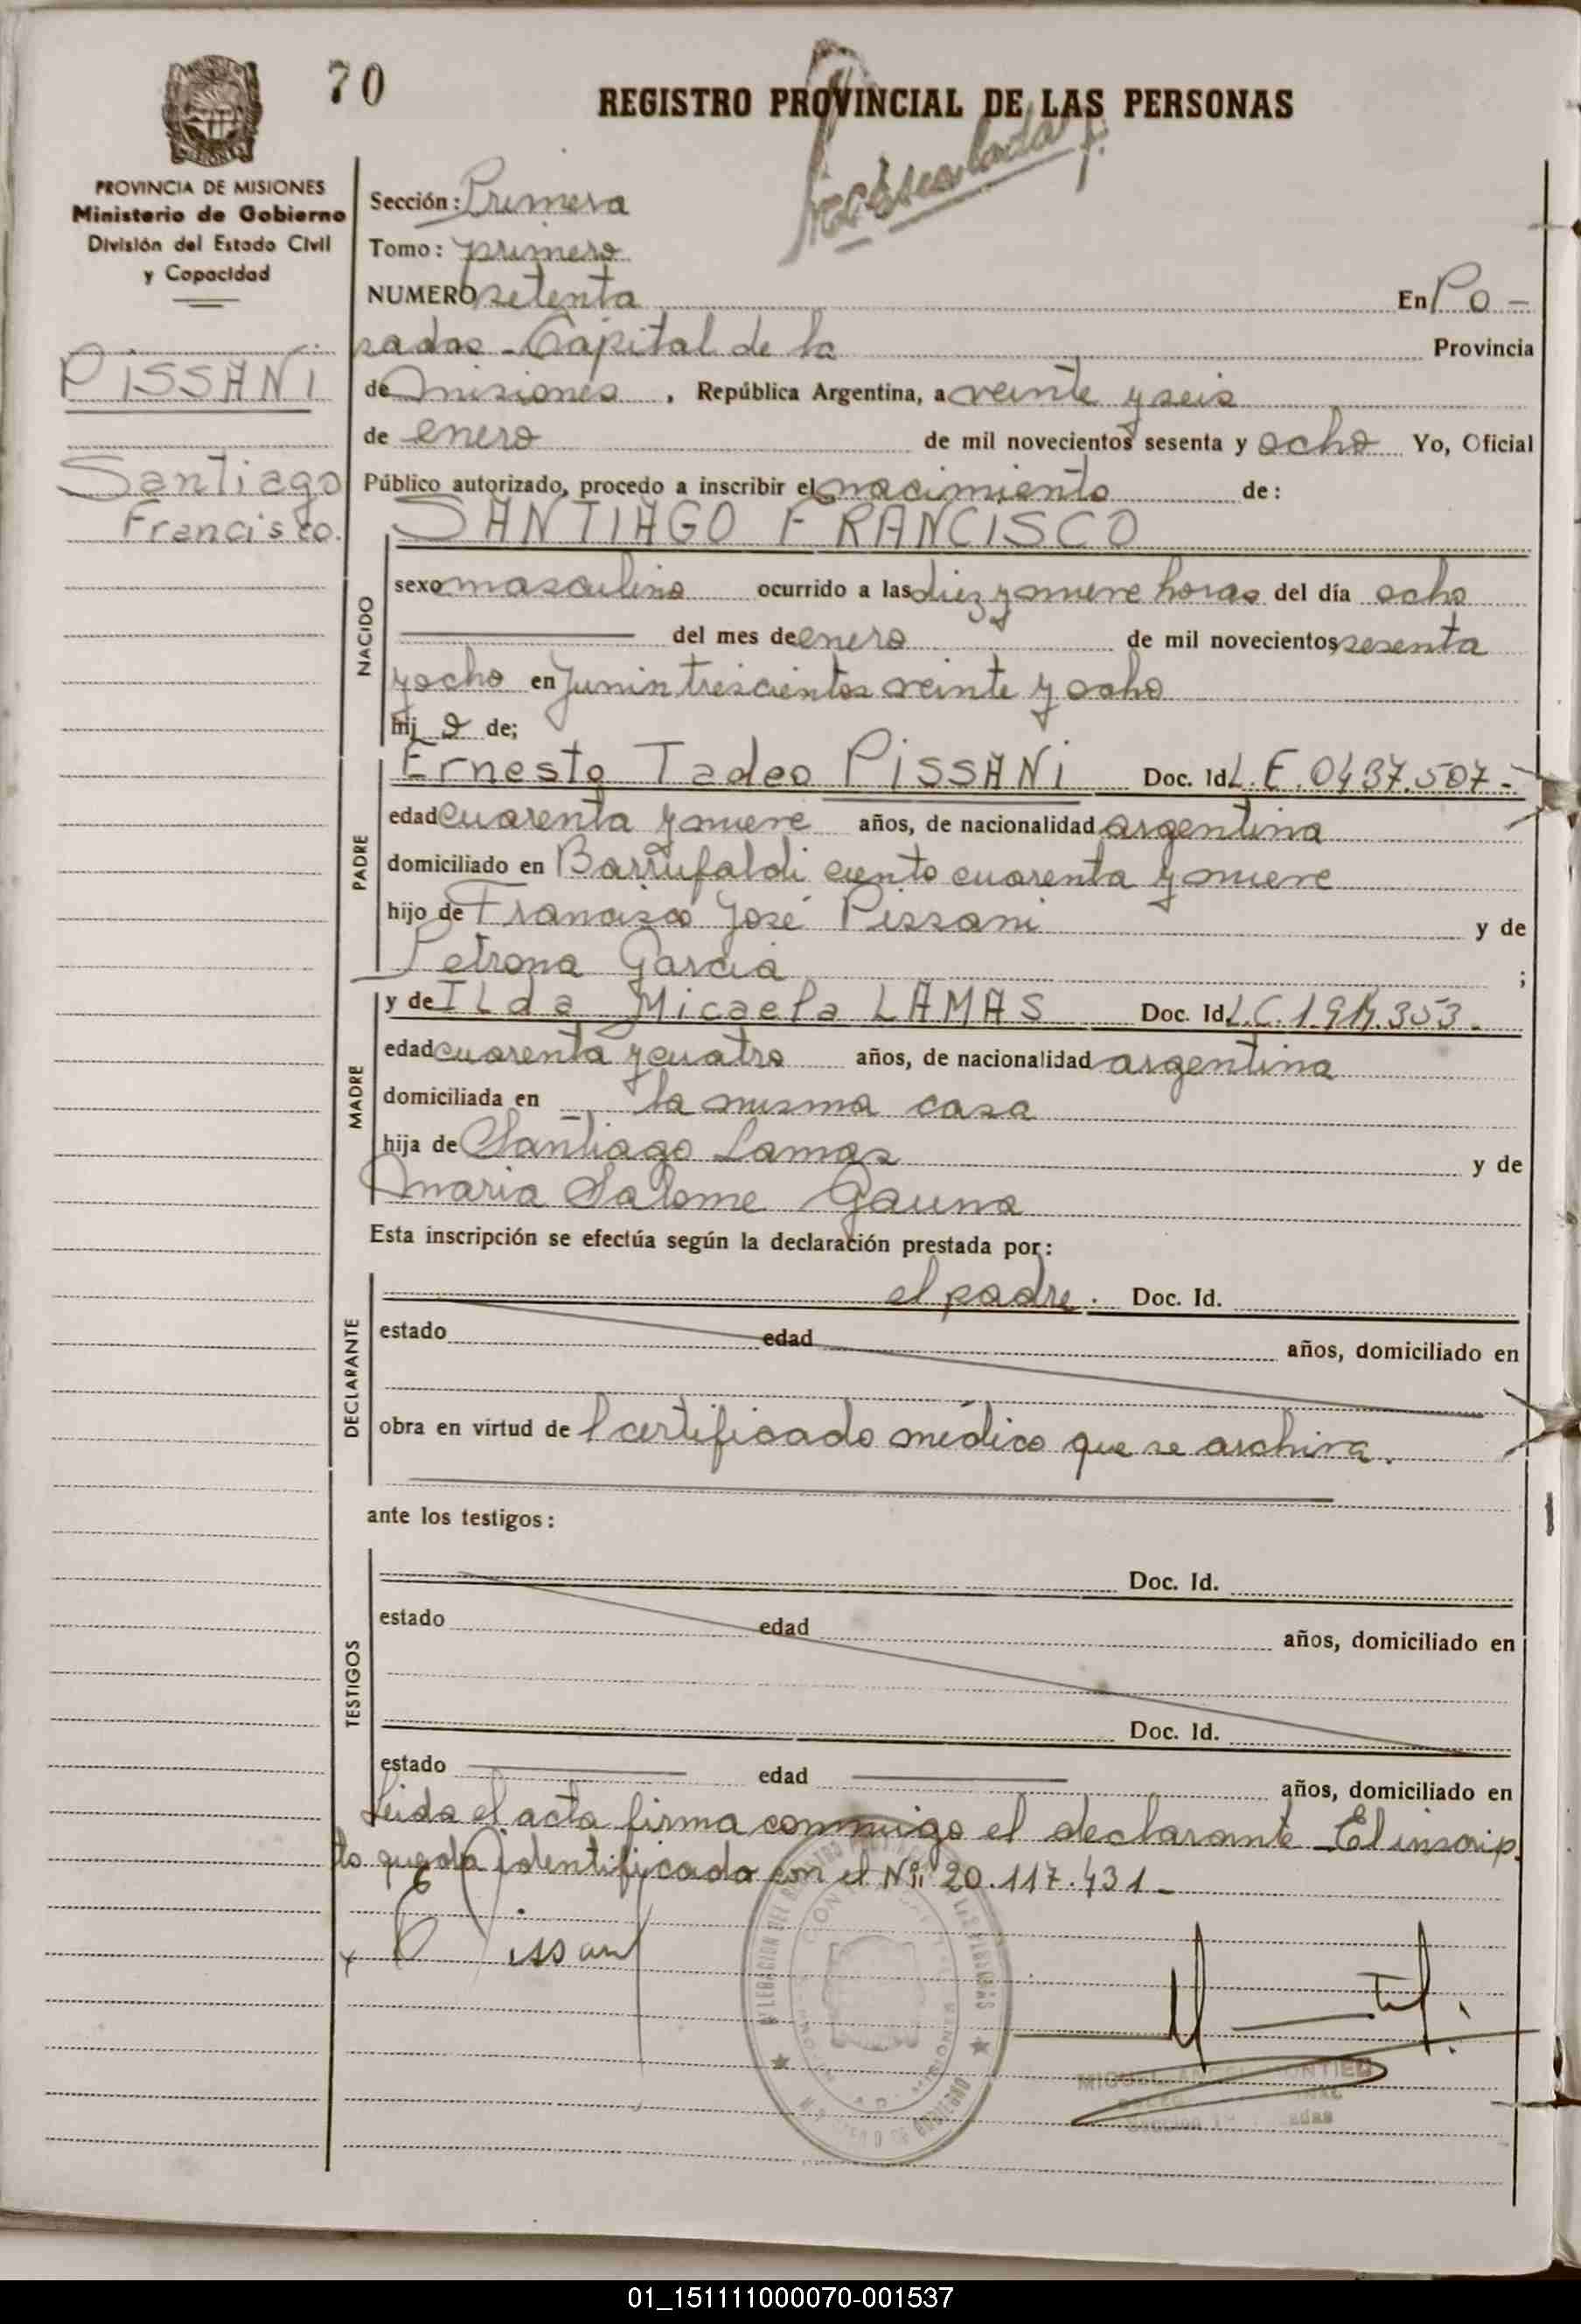 70
REGISTRO PROVINCIAL DE LAS PERSONAS
PROVINCIA DE MISIONES
Ministerio de Gobierno
División del Estado Civil
y Capacidad
PISSANI
Santiago
Francisco.
Sección: Primera
Tomo: primero
NUMERO setenta En Po-
sadas - Capital de la Provincia
de Misiones, República Argentina, a veinte y seis
de enero de mil novecientos sesenta y ocho Yo, Oficial
Público autorizado, procedo a inscribir el nacimiento de:
SANTIAGO FRANCISCO
NACIDO
sexo masculino ocurrido a las diez y nueve horas del día ocho
del mes de enero de mil novecientos sesenta
y ocho en Junin trescientos veinte y ocho
hij o de;
PADRE
Ernesto Tadeo PISSANI Doc. Id. L.E. 0437.507-
edad cuarenta y nueve años, de nacionalidad argentina
domiciliado en Barrufaldi ciento cuarenta y nueve
hijo de Francisco José Pissani y de
Petrona Garcia ;
MADRE
y de Ilda Micaela LAMAS Doc. Id. L.C.
edad cuarenta y cuatro años, de nacionalidad argentina
domiciliada en la misma casa
hija de Santiago Lamas y de
Maria Salome Gauna
Esta inscripción se efectúa según la declaración prestada por:
DECLARANTE
el padre. Doc. Id.
estado edad años, domiciliado en
obra en virtud de l certificado médico que se archiva.
ante los testigos:
TESTIGOS
Doc. Id.
estado edad años, domiciliado en
Doc. Id.
estado edad años, domiciliado en
Leida el acta firma conmigo el declarante - El inscrip
to queda identificado con el Nº 20.117.431-
Pissani
01_151111000070-001537